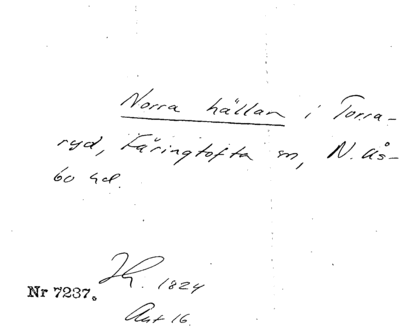 Norra hällan i Torra-
ryd, Färingtofta sn, N. Ås-
bo hd.
1824
Nr 7237.
Akt 16.